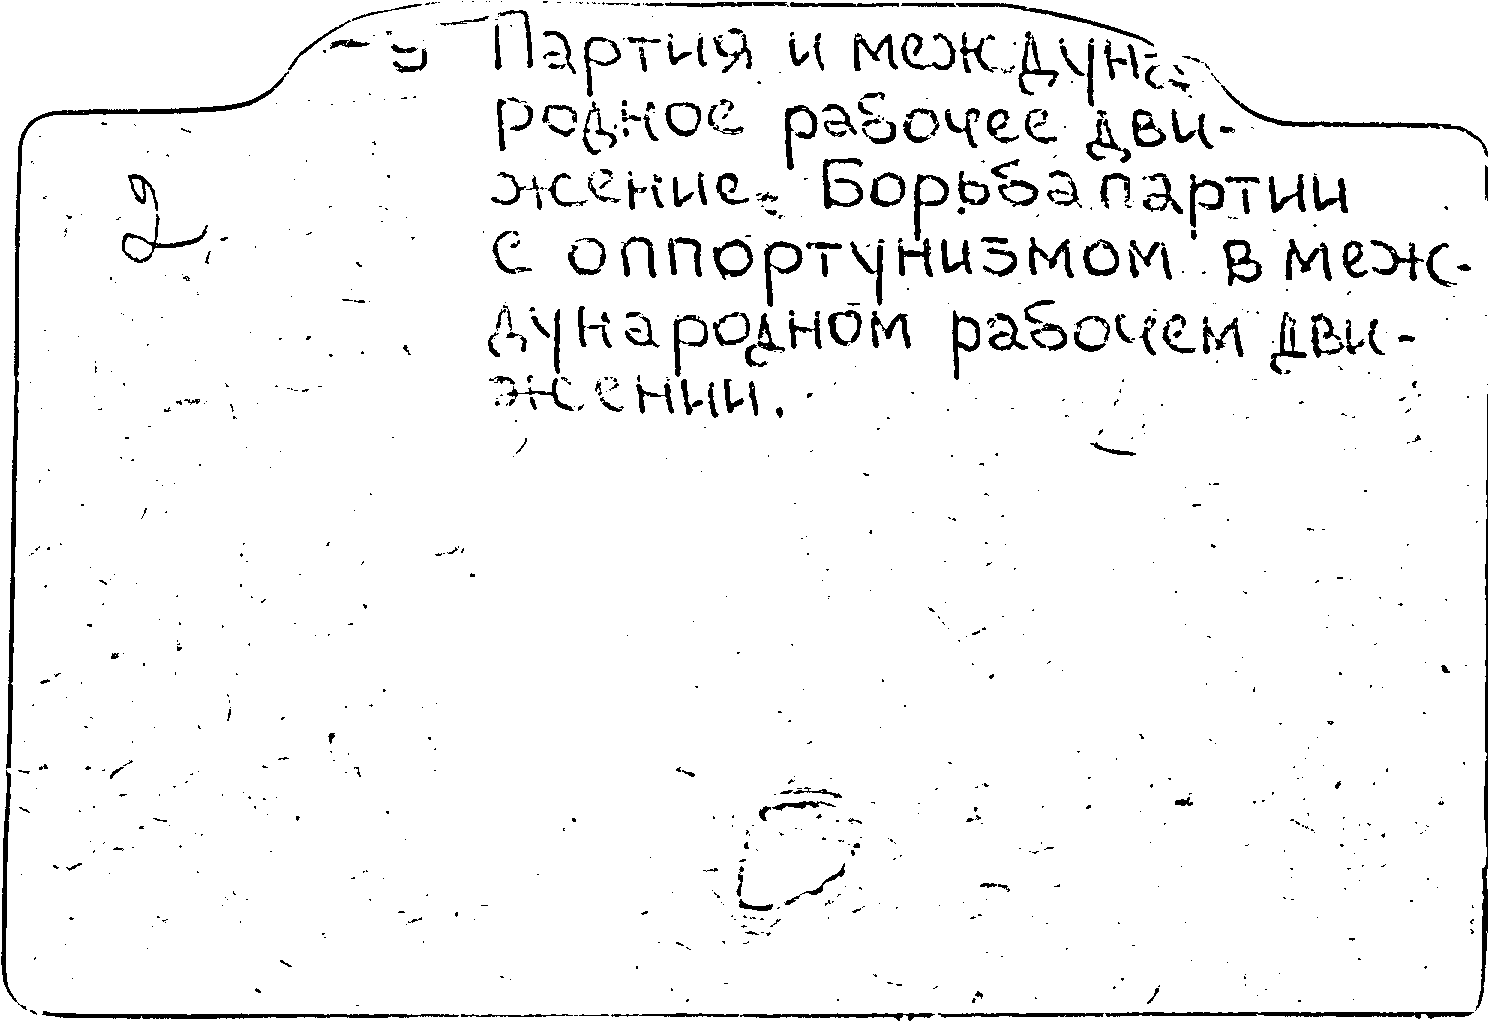 Партия и междуна-
родное рабочее дви-
жение. Борьба партии
2
с оппортунизмом в меж-
дународном рабочем дви-
жении.